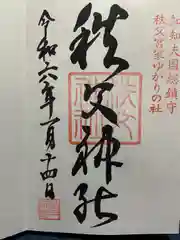 知知夫国総鎮守
秩父宮家ゆかりの社
秩父神社
令和六年一月十四日